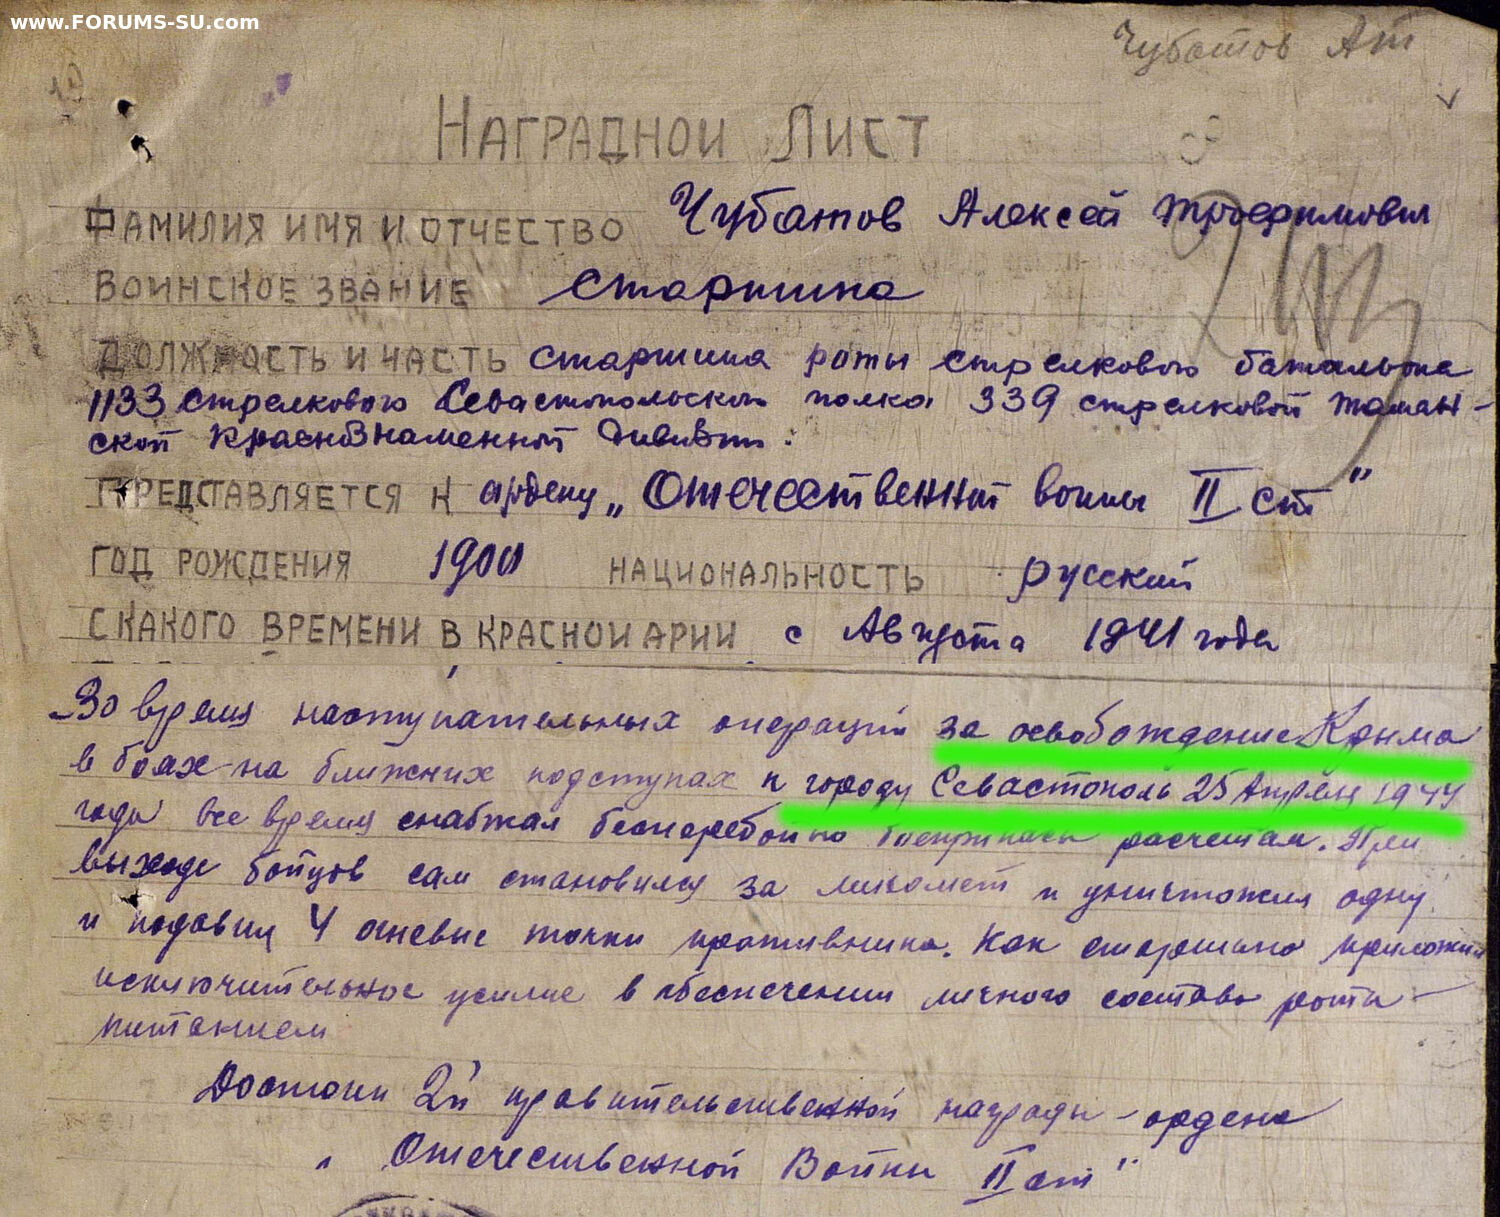 www.FORUMS-SU.com
Чубатов Ат
НАГРАДНОИ ЛИСТ
ФАМИЛИЯ ИМЯ И ОТЧЕСТВО Чубатов Алексей Трофимович
ВОИНСКОЕ ЗВАНИЕ старшина
ДОЛЖНОСТЬ И ЧАСТЬ старшина роты стрелкового батальона
1133 стрелкового Севастопольского полка 339 стрелковой Таман-
ской краснознаменной дивизии.
ПРЕДСТАВЛЯЕТСЯ К ордену „Отечественной войны II ст"
ГОД РОЖДЕНИЯ 1900 НАЦИОНАЛЬНОСТЬ русский
С КАКОГО ВРЕМЕНИ В КРАСНОИ АРИИ с Августа 1941 года
Во время наступательных операций за освобождение Крыма
в боях на ближних подступах к городу Севастополь 25 Апреля 1944
года все время снабжал бесперебойно боеприпасы расчетам. При
выходе бойцов сам становился за пулемет и уничтожил одну
и подавил 4 огневые точки противника. Как старшина приложил
исключительное усилие в обеспечении личного состава роты
питанием
Достоин 2й правительственной награды - ордена
„Отечественной Войны II ст"